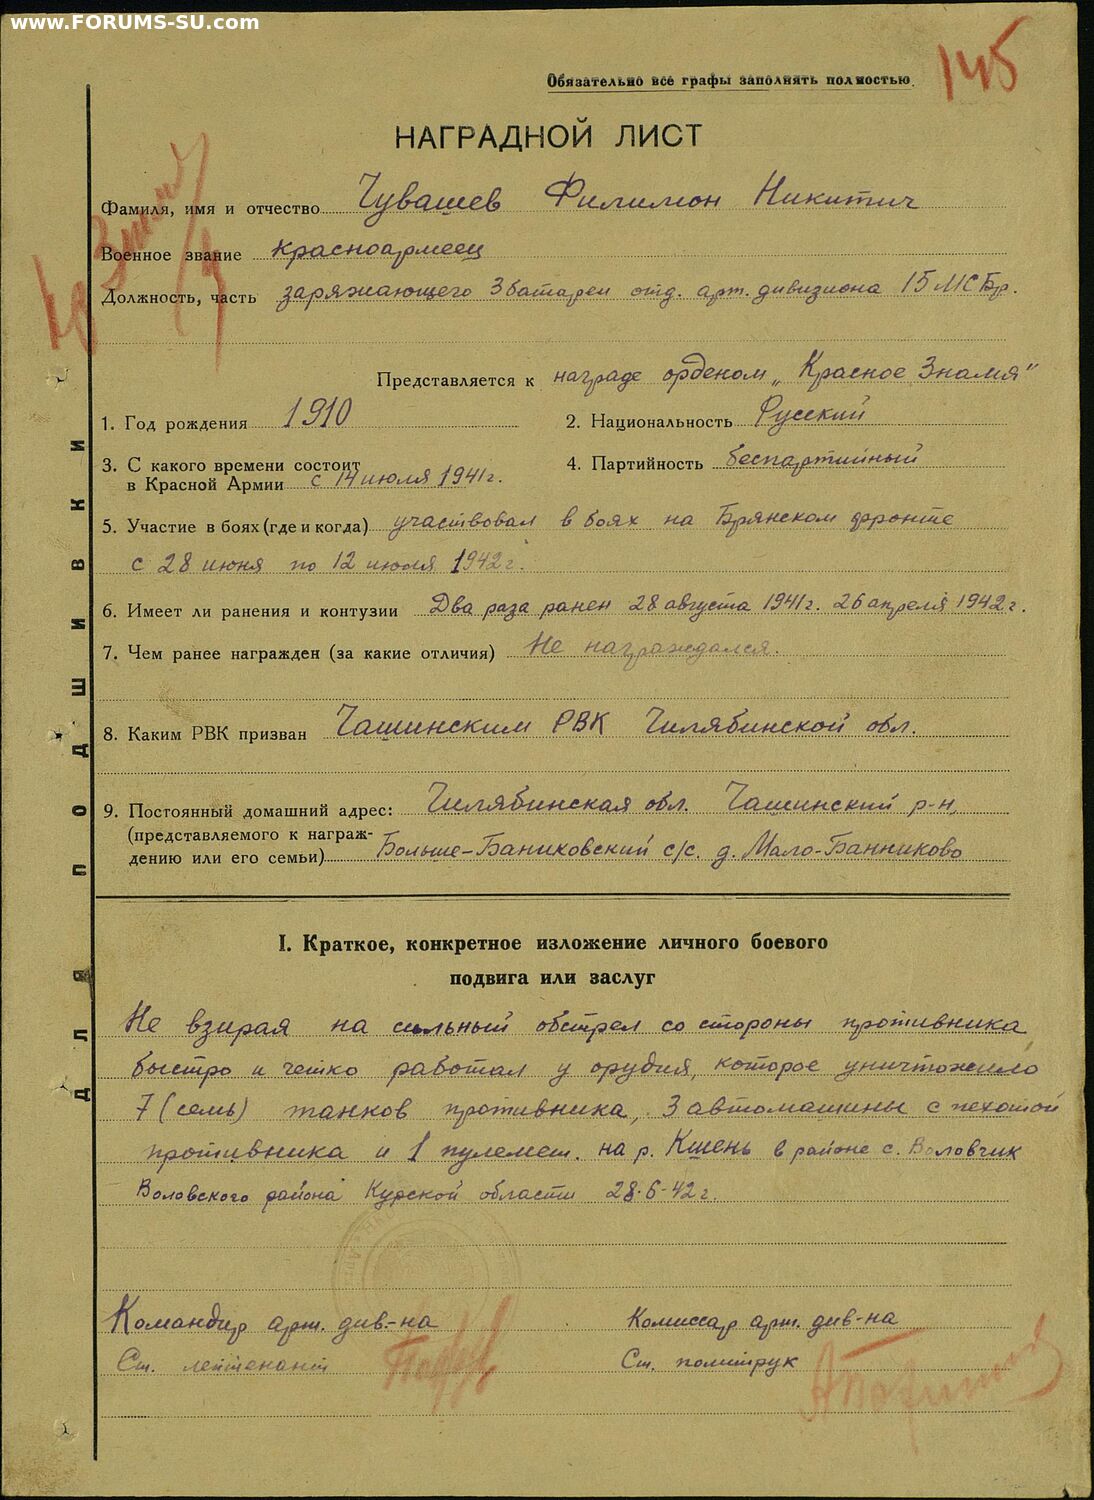 www.FORUMS-SU.com
145
Обязательно все графы заполнять полностью.
НАГРАДНОЙ ЛИСТ
Фамилия, имя и отчество Чувашев Филимон Никитич
Военное звание красноармеец
Должность, часть заряжающего 3 батареи отд. арт. дивизиона 15 МСБр.
Представляется к награде орденом „Красное Знамя"
1. Год рождения 1910
2. Национальность Русский
3. С какого времени состоит
в Красной Армии с 14 июля 1941г.
4. Партийность беспартийный
5. Участие в боях (где и когда) участвовал в боях на Брянском фронте
с 28 июня по 12 июля 1942г.
6. Имеет ли ранения и контузии Два раза ранен 28 августа 1941г. 26 апреля 1942г.
7. Чем ранее награжден (за какие отличия) Не награждался.
8. Каким РВК призван Чашинским РВК Чилябинской обл.
9. Постоянный домашний адрес: Чилябинская обл. Чашинский р-н,
(представляемого к награж-
дению или его семьи) Больше-Баниковский с/с. д. Мало-Банниково
ДЛЯ ПОДШИВКИ
I. Краткое, конкретное изложение личного боевого
подвига или заслуг
Не взирая на сильный обстрел со стороны противника
быстро и четко работал у орудия, которое уничтожило
7 (семь) танков противника, 3 автомашины с пехотой
противника и 1 пулемет. на р. Кшень в районе с. Воловчик
Воловского района Курской области 28-6-42г.
Командир арт. див-на
Комиссар арт. див-на
Ст. лейтенант
Ст. политрук